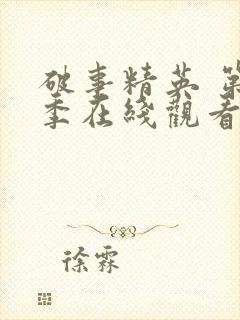 破事精英 第
季在綫觀看
徐霖